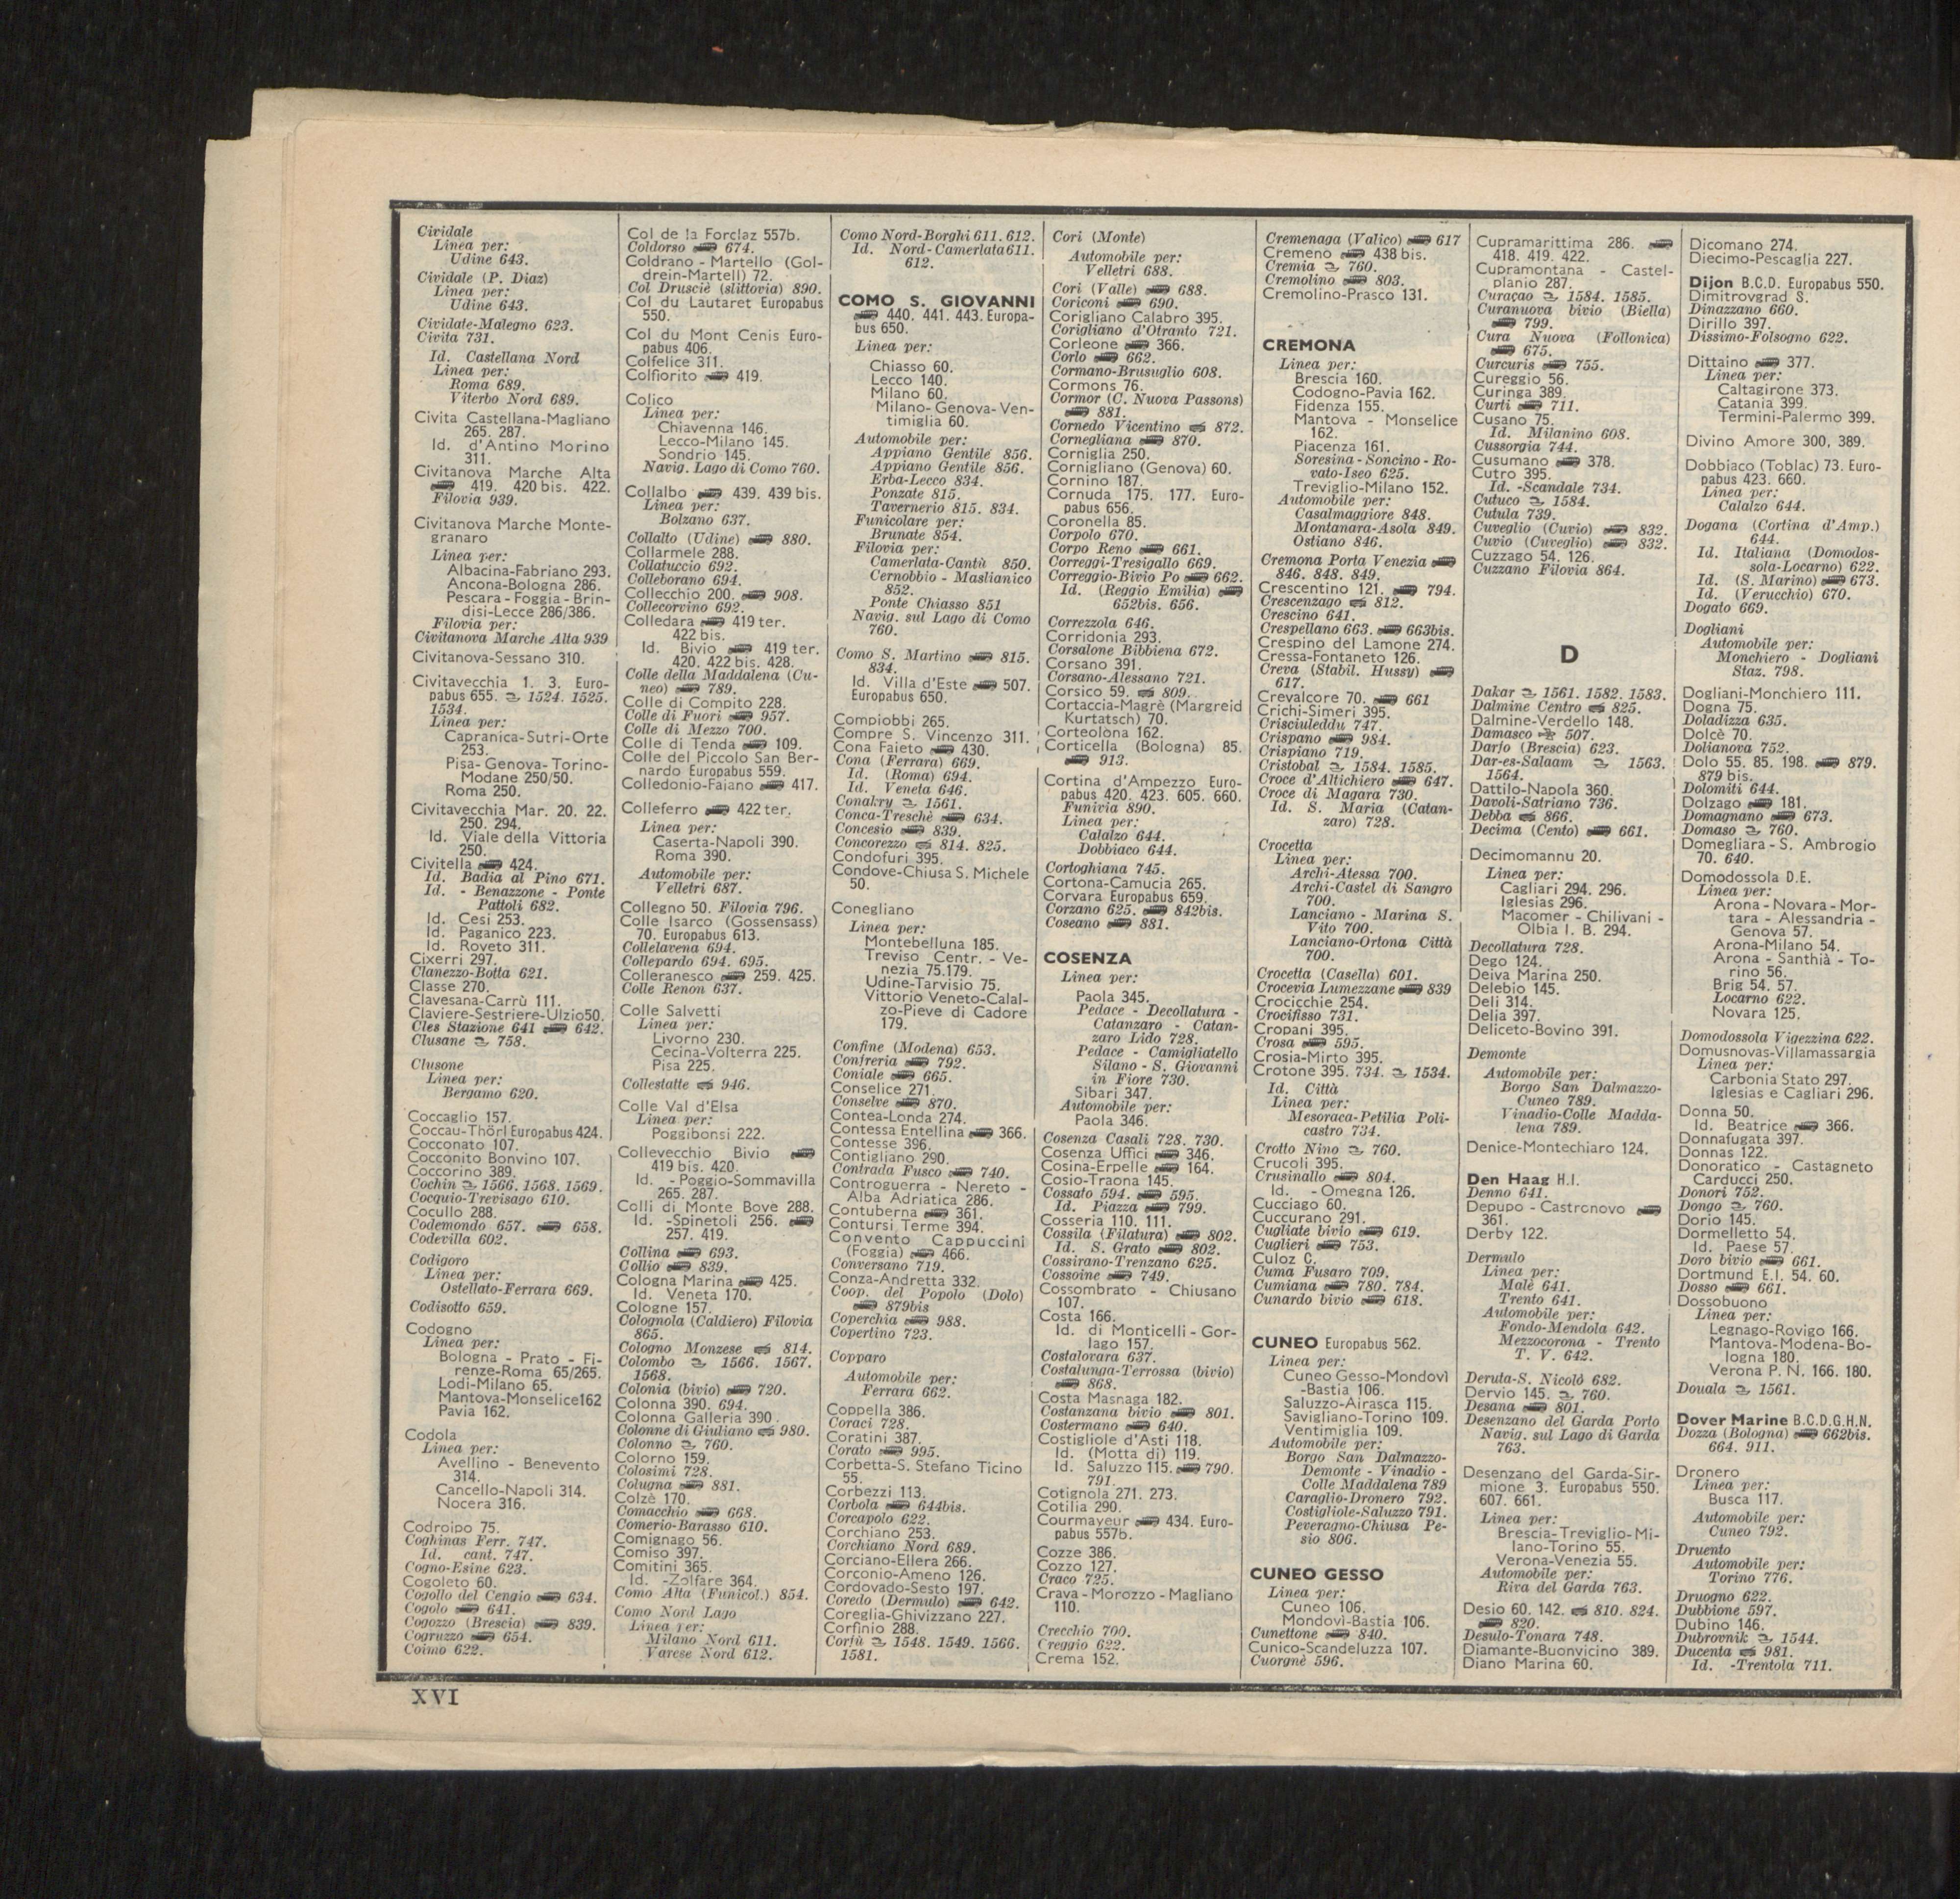 Cividale
Linea per:
Udine 643.
Cividale (P. Diaz)
Linea per:
Udine 643.
Cividate-Malegno 623.
Civita 731.
Id. Castellana Nord
Linea per:
Roma 689.
Viterbo Nord 689.
Civita Castellana-Magliano
265. 287.
Id. d'Antino Morino
311.
Civitanova Marche Alta
419. 420 bis. 422.
Filovia 939.
Civitanova Marche Monte-
granaro
Linea per:
Albacina-Fabriano 293.
Ancona-Bologna 286.
Pescara - Foggia - Brin-
disi-Lecce 286/386.
Filovia per:
Civitanova Marche Alta 939
Civitanova-Sessano 310.
Civitavecchia 1. 3. Euro-
pabus 655. 1524. 1525.
1534.
Linea per:
Capranica-Sutri-Orte
253.
Pisa- Genova- Torino-
Modane 250/50.
Roma 250.
Civitavecchia Mar. 20. 22.
250. 294.
Id. Viale della Vittoria
250.
Civitella 424.
Id. Badia al Pino 671.
Id. - Benazzone - Ponte
Pattoli 682.
Id. Cesi 253.
Id. Paganico 223.
Id. Roveto 311.
Cixerri 297.
Clanezzo-Botta 621.
Classe 270.
Clavesana-Carrù 111.
Claviere-Sestriere-Ulzio50.
Cles Stazione 641 642.
Clusane 758.
Clusone
Linea per:
Bergamo 620.
Coccaglio 157.
Coccau-Thörl Europabus 424.
Cocconato 107.
Cocconito Bonvino 107.
Coccorino 389.
Cochin 1566. 1568. 1569.
Cocquio-Trevisago 610.
Cocullo 288.
Codemondo 657. 658.
Codevilla 602.
Codigoro
Linea per:
Ostellato-Ferrara 669.
Codisotto 659.
Codogno
Linea per:
Bologna - Prato - Fi-
renze-Roma 65/265.
Lodi-Milano 65.
Mantova-Monselice162
Pavia 162.
Codola
Linea per:
Avellino - Benevento
314.
Cancello-Napoli 314.
Nocera 316.
Codroipo 75.
Coghinas Ferr. 747.
Id. cant. 747.
Cogno-Esine 623.
Cogoleto 60.
Cogollo del Cengio 634.
Cogolo 641.
Cogozzo (Brescia) 839.
Cogruzzo 654.
Coimo 622.
Col de la Forclaz 557b.
Coldorso 674.
Coldrano - Martello (Gol-
drein-Martell) 72.
Col Drusciè (slittovia) 890.
Col du Lautaret Europabus
550.
Col du Mont Cenis Euro-
pabus 406.
Colfelice 311.
Colfiorito 419.
Colico
Linea per:
Chiavenna 146.
Lecco-Milano 145.
Sondrio 145.
Navig. Lago di Como 760.
Collalbo 439. 439 bis.
Linea per:
Bolzano 637.
Collalto (Udine) 880.
Collarmele 288.
Collatuccio 692.
Colleborano 694.
Collecchio 200. 908.
Collecorvino 692.
Colledara 419 ter.
422 bis.
Id. Bivio 419 ter.
420. 422 bis. 428.
Colle della Maddalena (Cu-
neo) 789.
Colle di Compito 228.
Colle di Fuori 957.
Colle di Mezzo 700.
Colle di Tenda 109.
Colle del Piccolo San Ber-
nardo Europabus 559.
Colledonio-Faiano 417.
Colleferro 422 ter.
Linea per:
Caserta-Napoli 390.
Roma 390.
Automobile per:
Velletri 687.
Collegno 50. Filovia 796.
Colle Isarco (Gossensass)
70. Europabus 613.
Collelavena 694.
Collepardo 694. 695.
Colleranesco 259. 425.
Colle Renon 637.
Colle Salvetti
Linea per:
Livorno 230.
Cecina-Volterra 225.
Pisa 225.
Collestatte 946.
Colle Val d'Elsa
Linea per:
Poggibonsi 222.
Collevecchio Bivio
419 bis. 420.
Id. - Poggio-Sommavilla
265. 287.
Colli di Monte Bove 288.
Id. -Spinetoli 256.
257. 419.
Collina 693.
Collio 839.
Cologna Marina 425.
Id. Veneta 170.
Cologne 157.
Colognola (Caldiero) Filovia
865.
Cologno Monzese 814.
Colombo 1566. 1567.
1568.
Colonia (bivio) 720.
Colonna 390. 694.
Colonna Galleria 390 .
Colonne di Giuliano 980.
Colonno 760.
Colorno 159.
Colosimi 728.
Colugna 881.
Colzè 170.
Comacchio 668.
Comerio-Barasso 610.
Comignago 56.
Comiso 397.
Comitini 365.
Id. -Zolfare 364.
Como Alta (Funicol.) 854.
Como Nord Lago
Linea per:
Milano Nord 611.
Varese Nord 612.
Como Nord-Borghi 611. 612.
Id. Nord-Camerlata 611.
612.
COMO S. GIOVANNI
440. 441. 443. Europa-
bus 650.
Linea per:
Chiasso 60.
Lecco 140.
Milano 60.
Milano- Genova- Ven-
timiglia 60.
Automobile per:
Appiano Gentile 856.
Appiano Gentile 856.
Erba-Lecco 834.
Ponzate 815.
Tavernerio 815. 834.
Funicolare per:
Brunate 854.
Filovia per:
Camerlata-Cantù 850.
Cernobbio - Maslianico
852.
Ponte Chiasso 851
Navig. sul Lago di Como
760.
Como S. Martino 815.
834.
Id. Villa d'Este 507.
Europabus 650.
Compiobbi 265.
Compre S. Vincenzo 311.
Cona Faieto 430.
Cona (Ferrara) 669.
Id. (Roma) 694.
Id. Veneta 646.
Conakry 1561.
Conca-Treschè 634.
Concesio 839.
Concorezzo 814. 825.
Condofuri 395.
Condove-Chiusa S. Michele
50.
Conegliano
Linea per:
Montebelluna 185.
Treviso Centr. - Ve-
nezia 75.179.
Udine-Tarvisio 75.
Vittorio Veneto-Calal-
zo-Pieve di Cadore
179.
Confine (Modena) 653.
Confreria 792.
Coniale 665.
Conselice 271.
Conselve 870.
Contea-Londa 274.
Contessa Entellina 366.
Contesse 396.
Contigliano 290.
Contrada Fusco 740.
Controguerra - Nereto -
Alba Adriatica 286.
Contuberna 361.
Contursi Terme 394.
Convento Cappuccini
(Foggia) 466.
Conversano 719.
Conza-Andretta 332.
Coop. del Popolo (Dolo)
879bis
Coperchia 988.
Copertino 723.
Copparo
Automobile per:
Ferrara 662.
Coppella 386.
Coraci 728.
Coratini 387.
Corato 995.
Corbetta-S. Stefano Ticino
55.
Corbezzi 113.
Corbola 644bis.
Corcapolo 622.
Corchiano 253.
Corchiano Nord 689.
Corciano-Ellera 266.
Corconio-Ameno 126.
Cordovado-Sesto 197.
Coredo (Dermulo) 642.
Coreglia-Ghivizzano 227.
Corfinio 288.
Corfù 1548. 1549. 1566.
1581.
Cori (Monte)
Automobile per:
Velletri 688.
Cori (Valle) 688.
Coriconi 690.
Corigliano Calabro 395.
Corigliano d'Otranto 721.
Corleone 366.
Corlo 662.
Cormano-Brusuglio 608.
Cormons 76.
Cormor (C. Nuova Passons)
881.
Cornedo Vicentino 872.
Cornegliana 870.
Corniglia 250.
Cornigliano (Genova) 60.
Cornino 187.
Cornuda 175. 177. Euro-
pabus 656.
Coronella 85.
Corpolo 670.
Corpo Reno 661.
Correggi-Tresigallo 669.
Correggio-Bivio Po 662.
Id. (Reggio Emilia)
652bis. 656.
Correzzola 646.
Corridonia 293.
Corsalone Bibbiena 672.
Corsano 391.
Corsano-Alessano 721.
Corsico 59. 809.
Cortaccia-Magrè (Margreid
Kurtatsch) 70.
Corteolona 162.
Corticella (Bologna) 85.
913.
Cortina d'Ampezzo Euro-
pabus 420. 423. 605. 660.
Funivia 890.
Linea per:
Calalzo 644.
Dobbiaco 644.
Cortoghiana 745.
Cortona-Camucia 265.
Corvara Europabus 659.
Corzano 625. 842bis.
Coseano 881.
COSENZA
Linea per:
Paola 345.
Pedace - Decollatura -
Catanzaro - Catan-
zaro Lido 728.
Pedace - Camigliatello
Silano - S. Giovanni
in Fiore 730.
Sibari 347.
Automobile per:
Paola 346.
Cosenza Casali 728. 730.
Cosenza Uffici 346.
Cosina-Erpelle 164.
Cosio-Traona 145.
Cossato 594. 595.
Id. Piazza 799.
Cosseria 110. 111.
Cossila (Filatura) 802.
Id. S. Grato 802.
Cossirano-Trenzano 625.
Cossoine 749.
Cossombrato - Chiusano
107.
Costa 166.
Id. di Monticelli - Gor-
lago 157.
Costalovara 637.
Costalunga-Terrossa (bivio)
868.
Costa Masnaga 182.
Costanzana bivio 801.
Costermano 640.
Costigliole d'Asti 118.
Id. (Motta di) 119.
Id. Saluzzo 115. 790.
791.
Cotignola 271. 273.
Cotilia 290.
Courmayeur 434. Euro-
pabus 557b.
Cozze 386.
Cozzo 127.
Craco 725.
Crava - Morozzo - Magliano
110.
Crecchio 700.
Creggio 622.
Crema 152.
Cremenaga (Valico) 617
Cremeno 438 bis.
Cremia 760.
Cremolino 803.
Cremolino-Prasco 131.
CREMONA
Linea per:
Brescia 160.
Codogno-Pavia 162.
Fidenza 155.
Mantova - Monselice
162.
Piacenza 161.
Soresina - Soncino - Ro-
vato-Iseo 625.
Treviglio-Milano 152.
Automobile per:
Casalmaggiore 848.
Montanara-Asola 849.
Ostiano 846.
Cremona Porta Venezia
846. 848. 849.
Crescentino 121. 794.
Crescenzago 812.
Crescino 641.
Crespellano 663. 663bis.
Crespino del Lamone 274.
Cressa-Fontaneto 126.
Creva (Stabil. Hussy)
617.
Crevalcore 70. 661
Crichi-Simeri 395.
Crisciuleddu 747.
Crispano 984.
Crispiano 719.
Cristobal 1584. 1585.
Croce d'Altichiero 647.
Croce di Magara 730.
Id. S. Maria (Catan-
zaro) 728.
Crocetta
Linea per:
Archi-Atessa 700.
Archi-Castel di Sangro
700.
Lanciano - Marina S.
Vito 700.
Lanciano-Ortona Città
700.
Crocetta (Casella) 601.
Crocevia Lumezzane 839
Crocicchie 254.
Crocifisso 731.
Cropani 395.
Crosa 595.
Crosia-Mirto 395.
Crotone 395. 734. 1534.
Id. Città
Linea per:
Mesoraca-Petilia Poli-
castro 734.
Crotto Nino 760.
Crucoli 395.
Crusinallo 804.
Id. - Omegna 126.
Cucciago 60.
Cuccurano 291.
Cugliate bivio 619.
Cuglieri 753.
Culoz C.
Cuma Fusaro 709.
Cumiana 780. 784.
Cunardo bivio 618.
CUNEO Europabus 562.
Linea per:
Cuneo Gesso-Mondovì
-Bastia 106.
Saluzzo-Airasca 115.
Savigliano-Torino 109.
Ventimiglia 109.
Automobile per:
Borgo San Dalmazzo-
Demonte - Vinadio -
Colle Maddalena 789
Caraglio-Dronero 792.
Costigliole-Saluzzo 791.
Peveragno-Chiusa Pe-
sio 806.
CUNEO GESSO
Linea per:
Cuneo 106.
Mondovì-Bastia 106.
Cunettone 840.
Cunico-Scandeluzza 107.
Cuorgnè 596.
Cupramarittima 286.
418. 419. 422.
Cupramontana - Castel-
planio 287.
Curaçao 1584. 1585.
Curanuova bivio (Biella)
799.
Cura Nuova (Follonica)
675.
Curcuris 755.
Cureggio 56.
Curinga 389.
Curti 711.
Cusano 75.
Id. Milanino 608.
Cussorgia 744.
Cusumano 378.
Cutro 395.
Id. -Scandale 734.
Cutuco 1584.
Cutula 739.
Cuveglio (Cuvio) 832.
Cuvio (Cuveglio) 832.
Cuzzago 54. 126.
Cuzzano Filovia 864.
D
Dakar 1561. 1582. 1583.
Dalmine Centro 825.
Dalmine-Verdello 148.
Damasco 507.
Darfo (Brescia) 623.
Dar-es-Salaam 1563.
1564.
Dattilo-Napola 360.
Davoli-Satriano 736.
Debba 866.
Decima (Cento) 661.
Decimomannu 20.
Linea per:
Cagliari 294. 296.
Iglesias 296.
Macomer - Chilivani -
Olbia I. B. 294.
Decollatura 728.
Dego 124.
Deiva Marina 250.
Delebio 145.
Deli 314.
Delia 397.
Deliceto-Bovino 391.
Demonte
Automobile per:
Borgo San Dalmazzo-
Cuneo 789.
Vinadio-Colle Madda-
lena 789.
Denice-Montechiaro 124.
Den Haag H.I.
Denno 641.
Depupo - Castronovo
361.
Derby 122.
Dermulo
Linea per:
Malè 641.
Trento 641.
Automobile per:
Fondo-Mendola 642.
Mezzocorona - Trento
T. V. 642.
Deruta-S. Nicolò 682.
Dervio 145. 760.
Desana 801.
Desenzano del Garda Porto
Navig. sul Lago di Garda
763.
Desenzano del Garda-Sir-
mione 3. Europabus 550.
607. 661.
Linea per:
Brescia-Treviglio-Mi-
lano-Torino 55.
Verona-Venezia 55.
Automobile per:
Riva del Garda 763.
Desio 60. 142. 810. 824.
820.
Desulo-Tonara 748.
Diamante-Buonvicino 389.
Diano Marina 60.
Dicomano 274.
Diecimo-Pescaglia 227.
Dijon B.C.D. Europabus 550.
Dimitrovgrad S.
Dinazzano 660.
Dirillo 397.
Dissimo-Folsogno 622.
Dittaino 377.
Linea per:
Caltagirone 373.
Catania 399
Termini-Palermo 399.
Divino Amore 300, 389.
Dobbiaco (Toblac) 73. Euro-
pabus 423. 660.
Linea per:
Calalzo 644.
Dogana (Cortina d'Amp.)
644.
Id. Italiana (Domodos-
sola-Locarno) 622.
Id. (S. Marino) 673.
Id. (Verucchio) 670.
Dogato 669.
Dogliani
Automobile per:
Monchiero - Dogliani
Staz. 798.
Dogliani-Monchiero 111.
Dogna 75.
Doladizza 635.
Dolcè 70.
Dolianova 752.
Dolo 55. 85. 198. 879.
879 bis.
Dolomiti 644.
Dolzago 181.
Domagnano 673.
Domaso 760.
Domegliara - S. Ambrogio
70. 640.
Domodossola D.E.
Linea per:
Arona - Novara - Mor-
tara - Alessandria -
Genova 57.
Arona-Milano 54.
Arona - Santhià - To-
rino 56.
Brig 54. 57.
Locarno 622.
Novara 125.
Domodossola Vigezzina 622.
Domusnovas-Villamassargia
Linea per:
Carbonia Stato 297.
Iglesias e Cagliari 296.
Donna 50.
Id. Beatrice 366.
Donnafugata 397.
Donnas 122.
Donoratico - Castagneto
Carducci 250.
Donori 752.
Dongo 760.
Dorio 145.
Dormelletto 54.
Id. Paese 57.
Doro bivio 661.
Dortmund E.I. 54. 60.
Dosso 661.
Dossobuono
Linea per:
Legnago-Rovigo 166.
Mantova-Modena-Bo-
logna 180.
Verona P. N. 166. 180.
Douala 1561.
Dover Marine B.C.D.G.H.N.
Dozza (Bologna) 662bis.
664. 911.
Dronero
Linea per:
Busca 117.
Automobile per:
Cuneo 792.
Druento
Automobile per:
Torino 776.
Druogno 622.
Dubbione 597.
Dubino 146.
Dubrovnik 1544.
Ducenta 981.
Id. -Trentola 711.
XVI